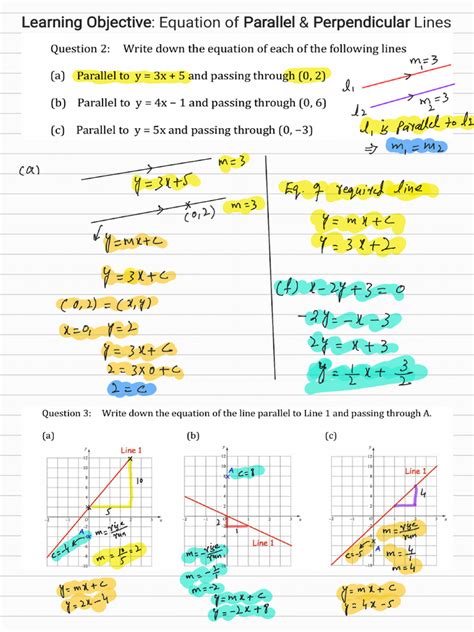 Learning Objective: Equation of Parallel & Perpendicular Lines
Question 2: Write down the equation of each of the following lines
(a) Parallel to y = 3x + 5 and passing through (0, 2)
(b) Parallel to y = 4x − 1 and passing through (0, 6)
(c) Parallel to y = 5x and passing through (0, −3)
m=3
l₁
m₂=3
l₂
l₁ is Parallel to l₂
⇒ m₁=m₂
(a)
m=3
y=3x+5
(0,2)
m=3
y=mx+c
y=3x+c
(0,2)=(x,y)
x=0, y=2
y=3x+c
2=3x0+c
2=c
Eq. of required line
y=mx+c
y=3x+2
(f) x-2y+3=0
-2y=-x-3
2y=x+3
y=1/2 x+3/2
Question 3: Write down the equation of the line parallel to Line 1 and passing through A.
(a)
Line 1
10
5
A
c=-4
m=rise/run
m=10/5=2
y=mx+c
y=2x-4
(b)
A
c=8
2
1
Line 1
m=rise/run
m=-2/1
m=-2
y=mx+c
y=-2x+8
(c)
Line 1
4
1
A
c=-5
m=rise/run
m=4/1
m=4
y=mx+c
y=4x-5